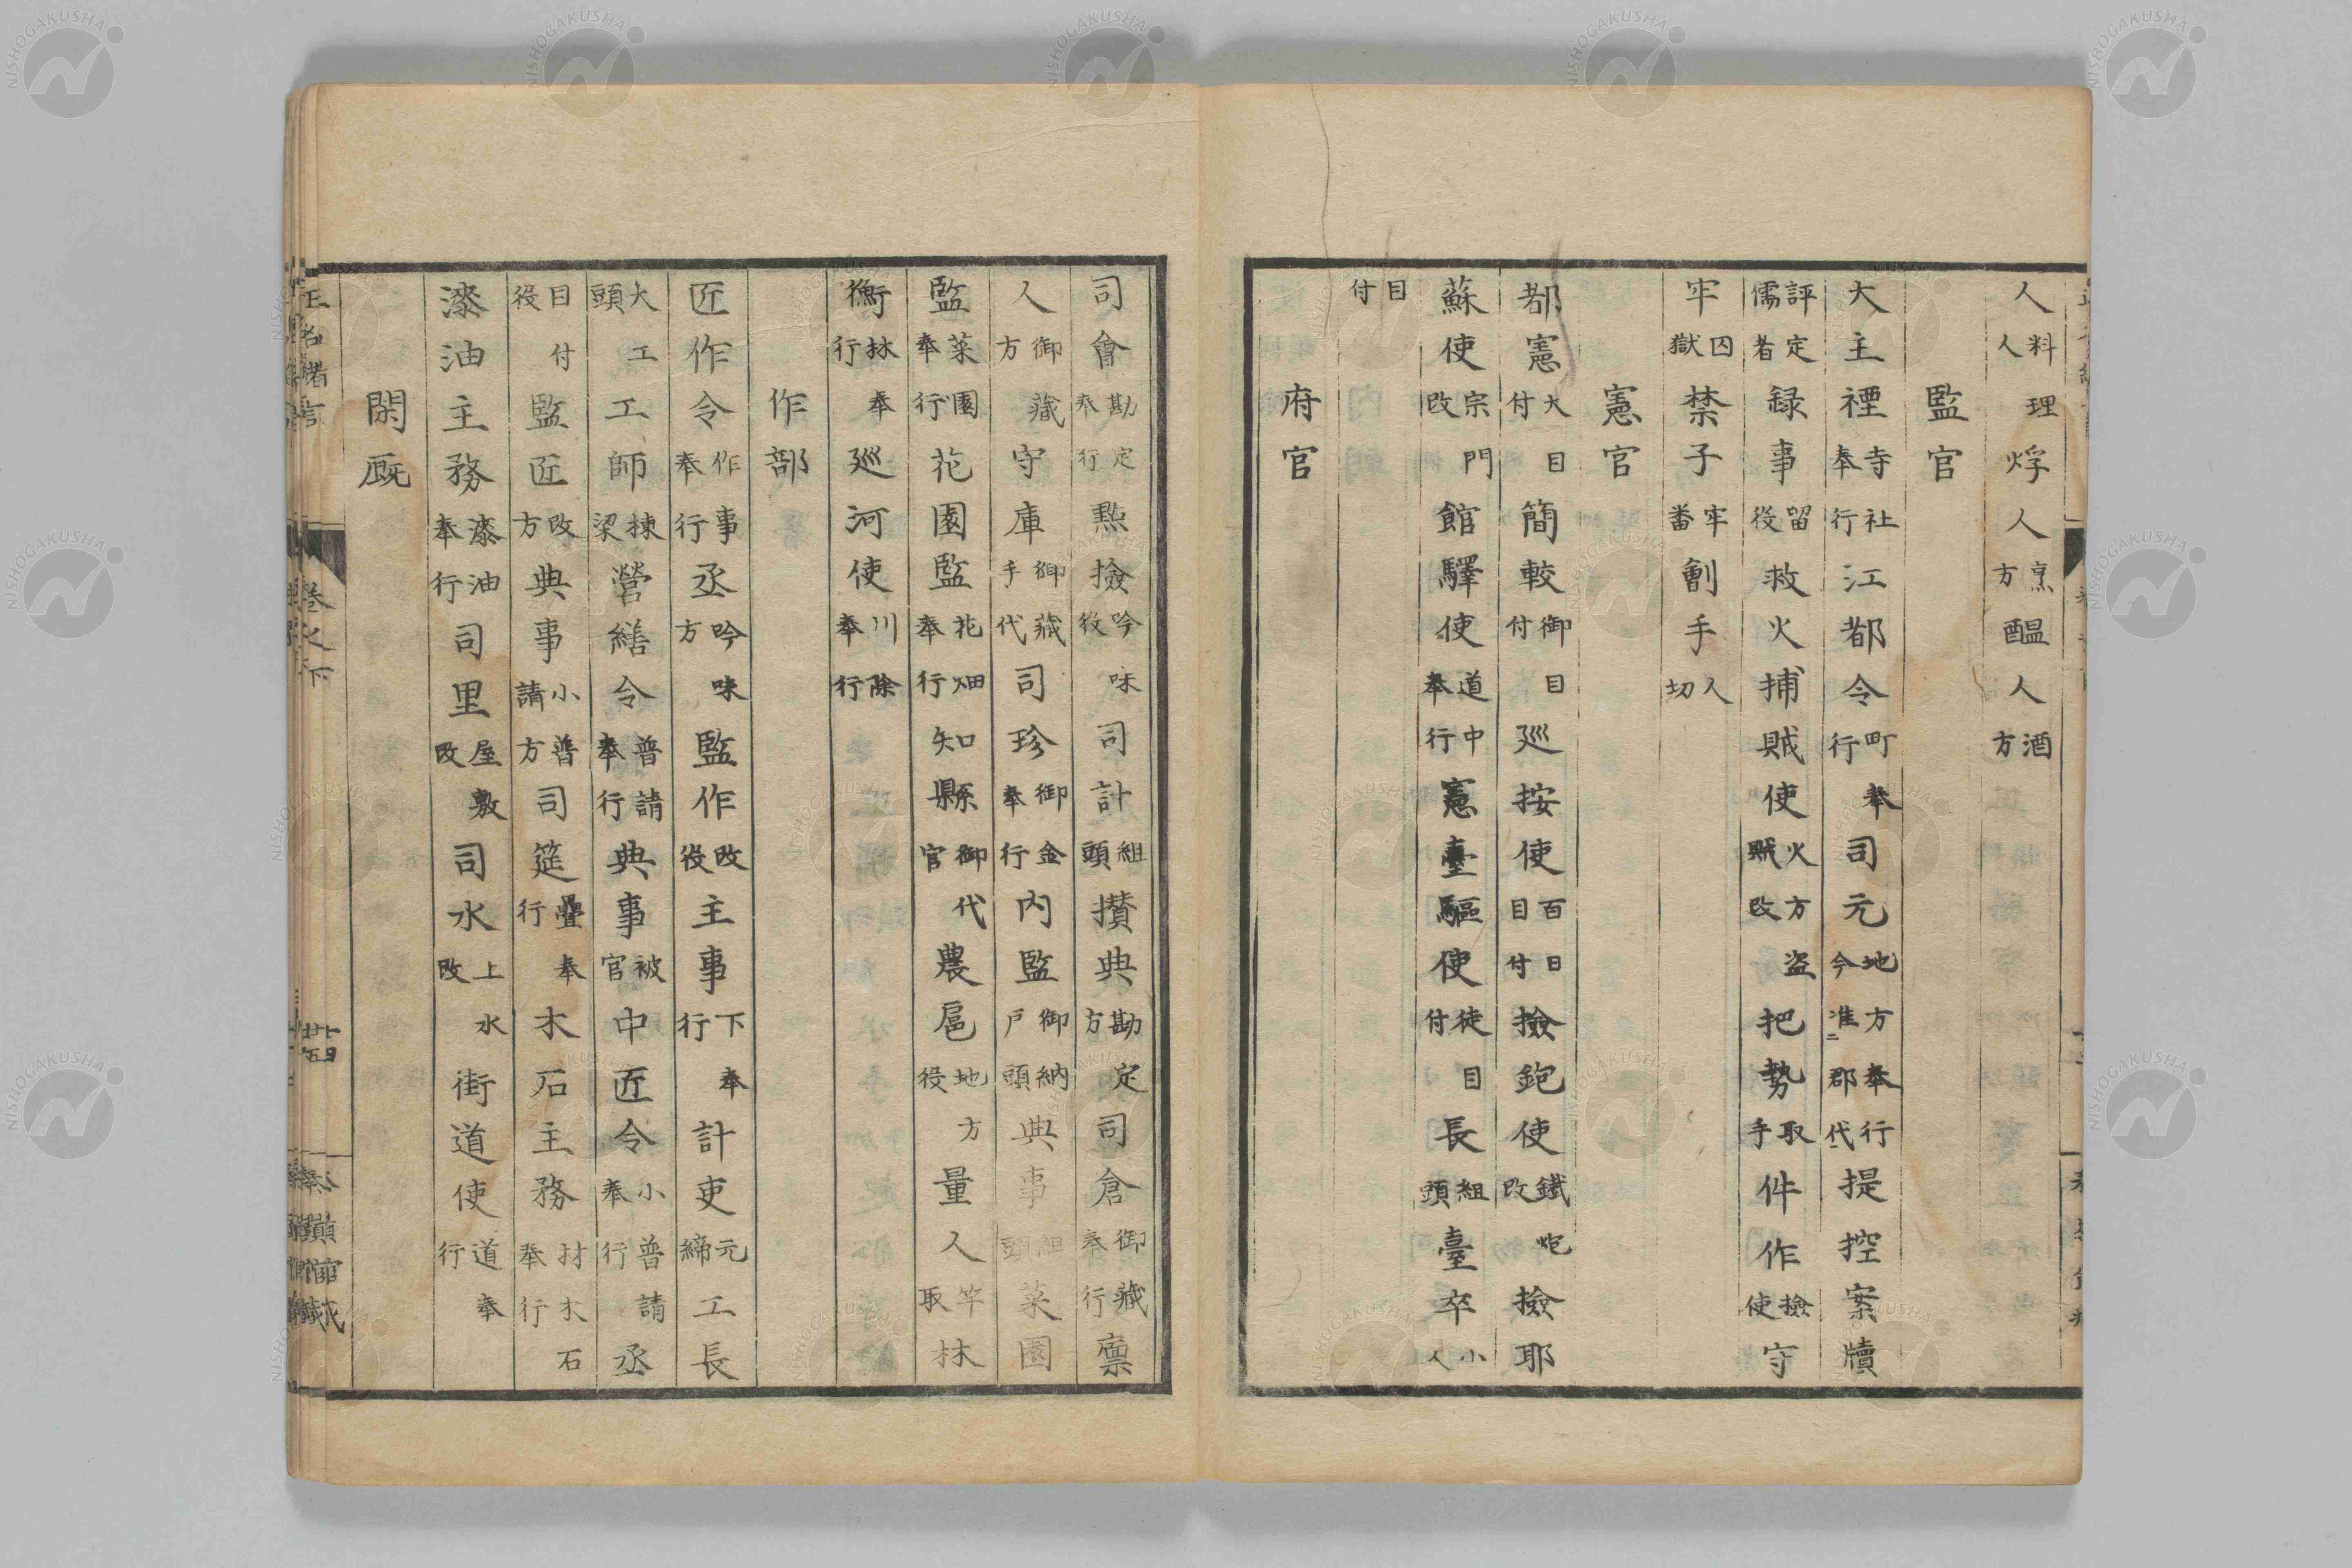 人料理人烰人烹方醖人酒方
監官
大主禋寺社奉行江都令町奉行司元地方奉行今准二郡代提控案牘
評定儒者録事留役救火捕賊使火方盗賊改把勢取手件作檢使守
牢囚獄禁子牢番劊手人切
憲官
都憲大目付簡較御目付廵按使百目目付撿鉋使鐵炮改撿耶
蘇使宗門改館驛使道中奉行憲臺驅使徒目付長組頭臺卒小人
目付
府官
司會勘定奉行㸃撿吟味役司計組頭攅典勘定方司倉御藏奉行廪
人御藏方守庫御藏手代司珍御金奉行内監御納戸頭典事組頭菜園
監菜園奉行花園監花畑奉行知縣御代官農扈地方役量人竿取林
衡林奉行廵河使川除奉行
作部
匠作令作事奉行丞吟味方監作改役主事下奉行計吏元締工長
大工頭工師棟梁營繕令普請奉行典事被官中匠令小普請奉行丞
目付役監匠改方典事小普請方司筵疊奉行木石主務材木石奉行
漆油主務漆油奉行司里屋敷改司水上水改街道使道奉行
閑厩
卷之下
NISHOGAKUSHA